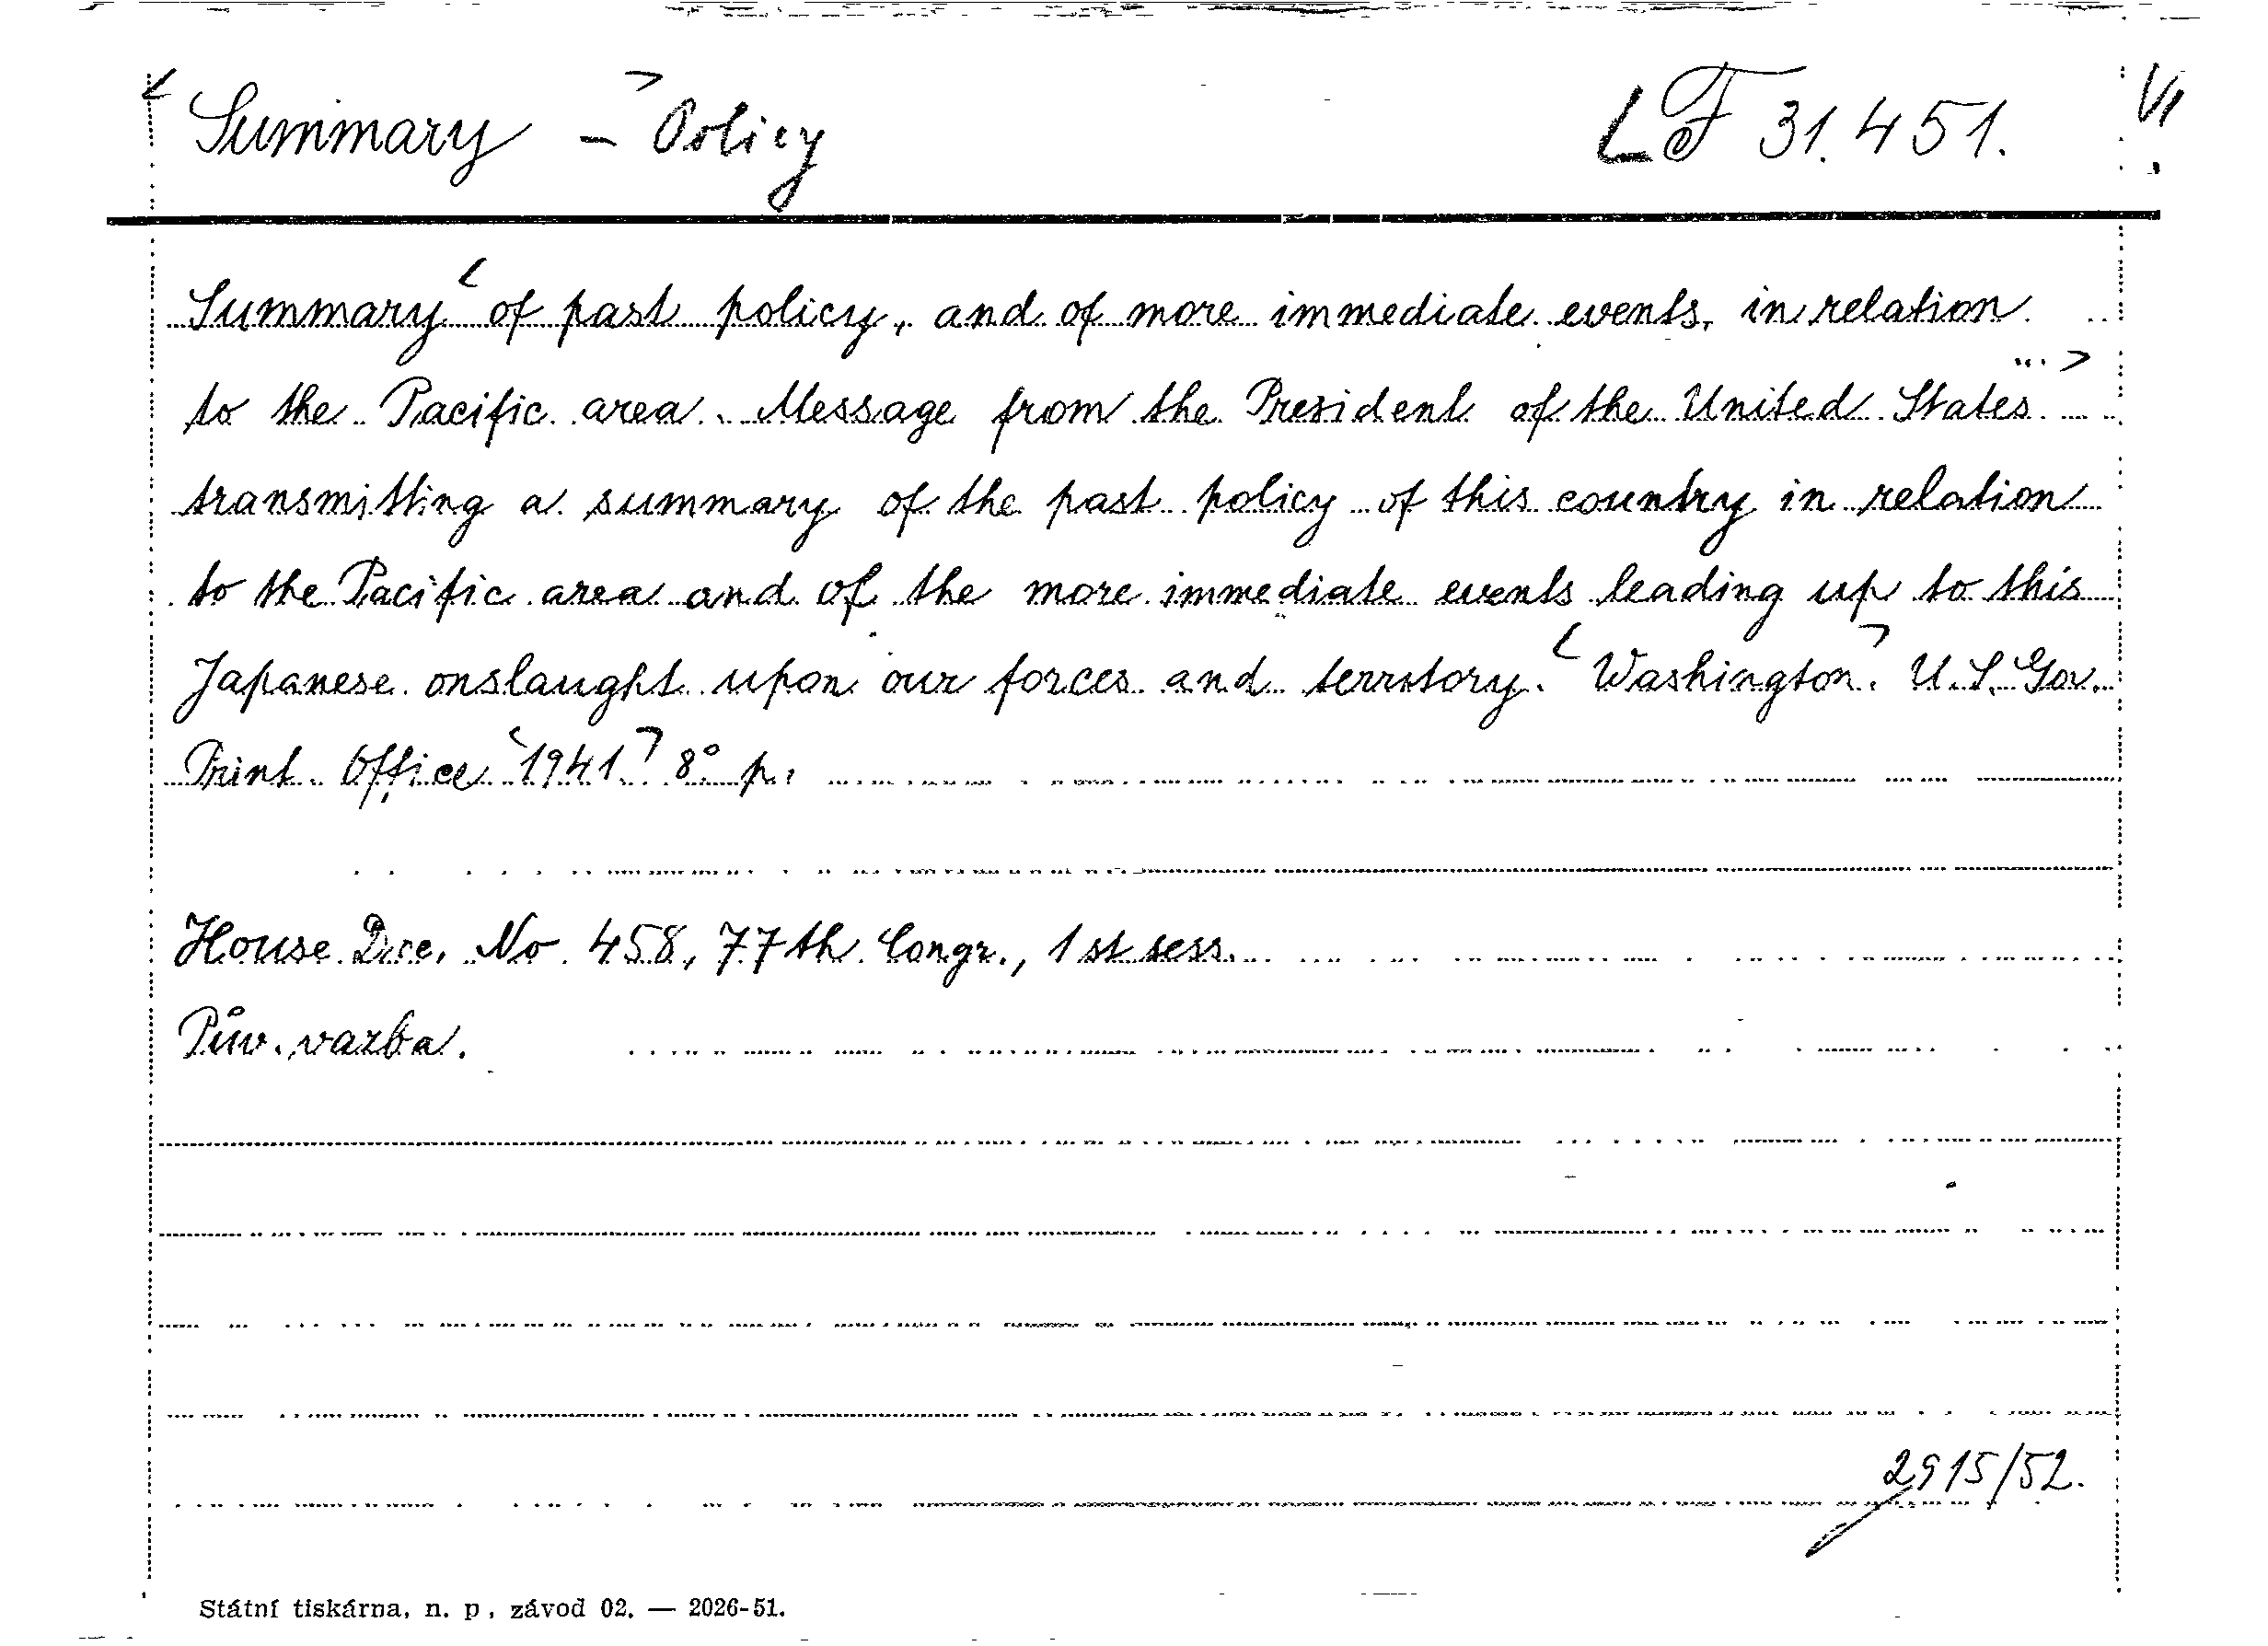 Summary – Policy LF 31.451. VI
Summary of past policy, and of more immediate events, in relation
to the Pacific area. Message from the President of the United States ...
transmitting a summary of the past policy of this country in relation
to the Pacific area and of the more immediate events leading up to this
Japanese onslaught upon our forces and territory. Washington. U.S. Gov.
Print. Office 1941. 8° p.
House Doc. No 458, 77th Congr., 1st sess.
Pův. vazba.
2915/52.
Státní tiskárna, n. p., závod 02. — 2026-51.